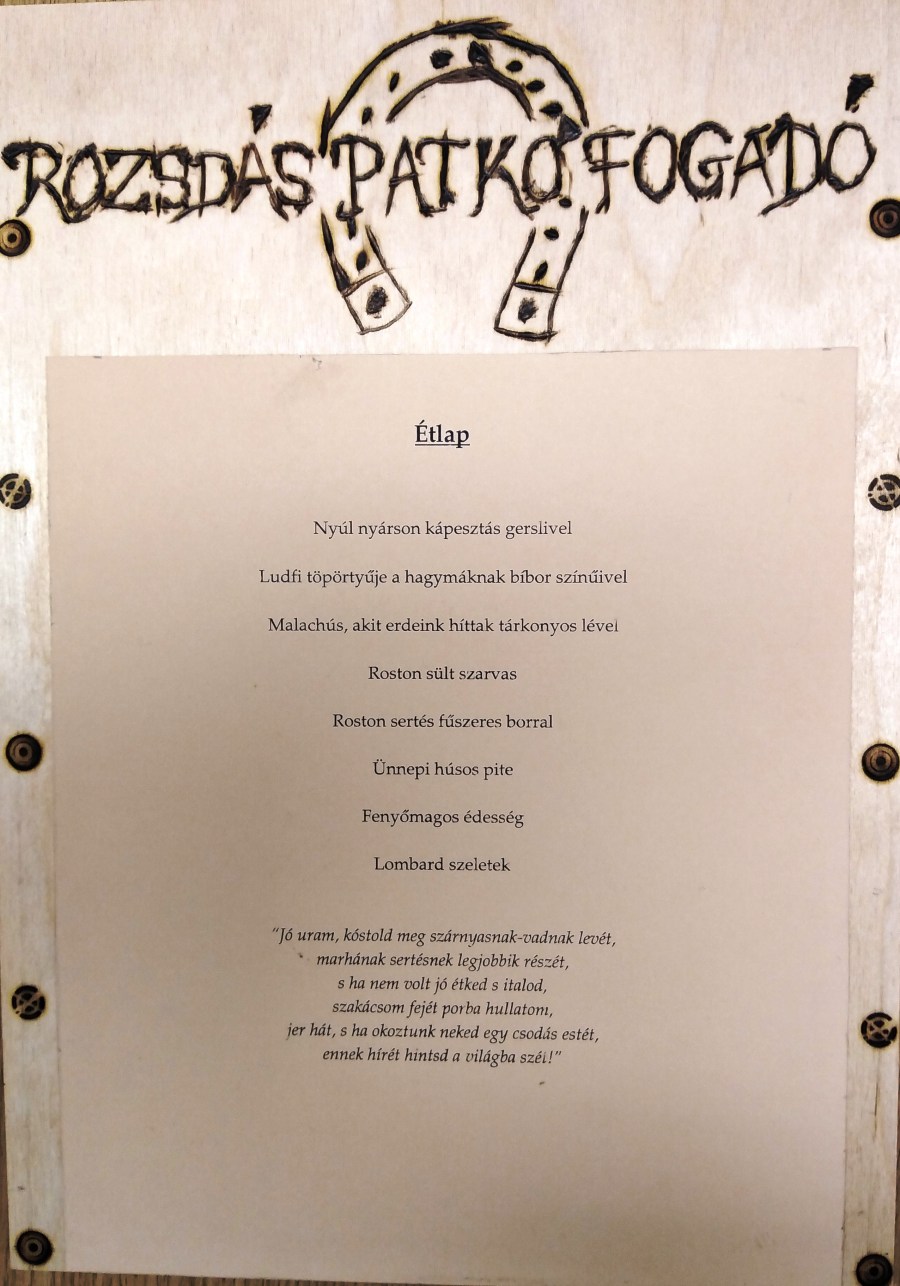 ROZSDÁS PATKÓ FOGADÓ
Étlap
Nyúl nyárson kápesztás gerslivel
Ludfi töpörtyűje a hagymáknak bíbor színűivel
Malachús, akit erdeink híttak tárkonyos lével
Roston sült szarvas
Roston sertés fűszeres borral
Ünnepi húsos pite
Fenyőmagos édesség
Lombard szeletek
"Jó uram, kóstold meg szárnyasnak-vadnak levét,
marhának sertésnek legjobbik részét,
s ha nem volt jó étked s italod,
szakácsom fejét porba hullatom,
jer hát, s ha okoztunk neked egy csodás estét,
ennek hírét hintsd a világba szél!"